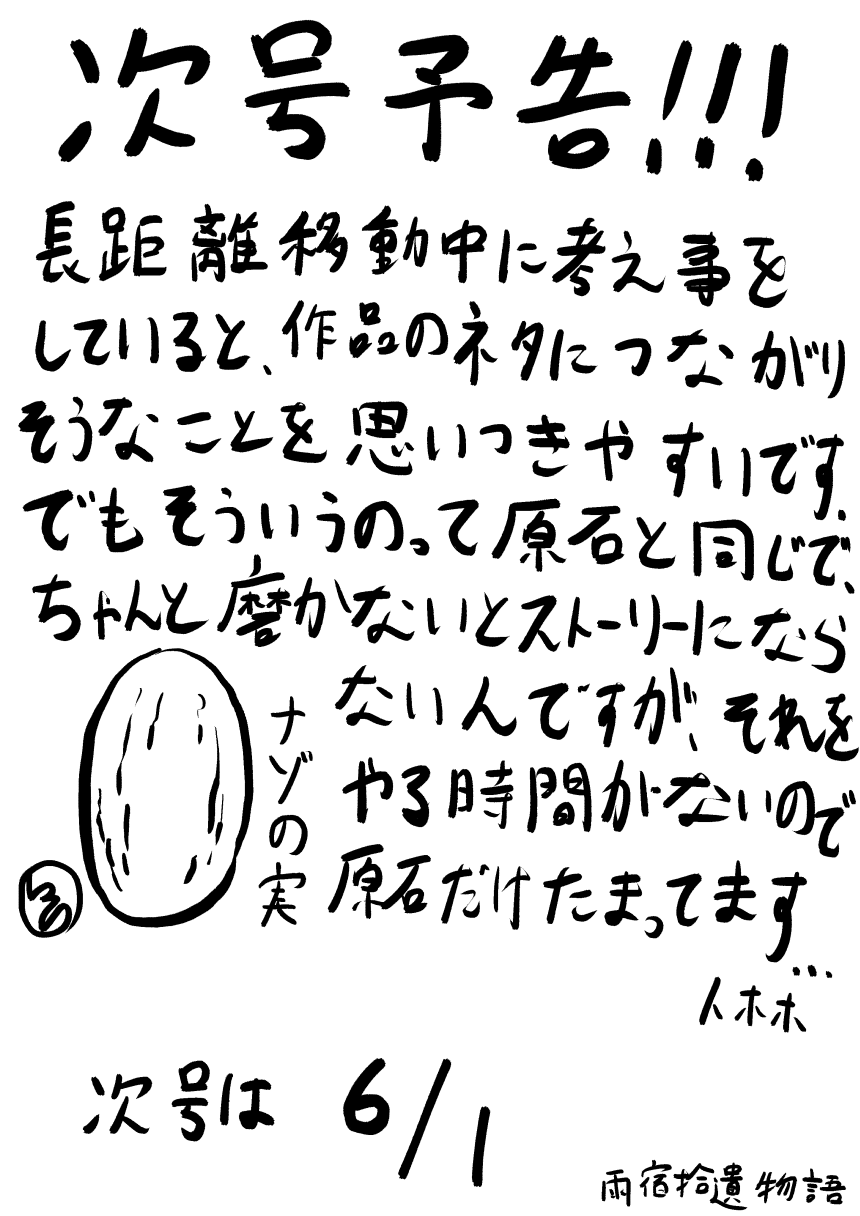 次号予告!!!
長距離移動中に考え事を
していると、作品のネタにつながり
そうなことを思いつきやすいです。
でもそういうのって原石と同じで、
ちゃんと磨かないとストーリーになら
ないんですが、それを
やる時間がないので
原石だけたまってます…
ナゾの実
トホホ
次号は 6/1
雨宿拾遺物語